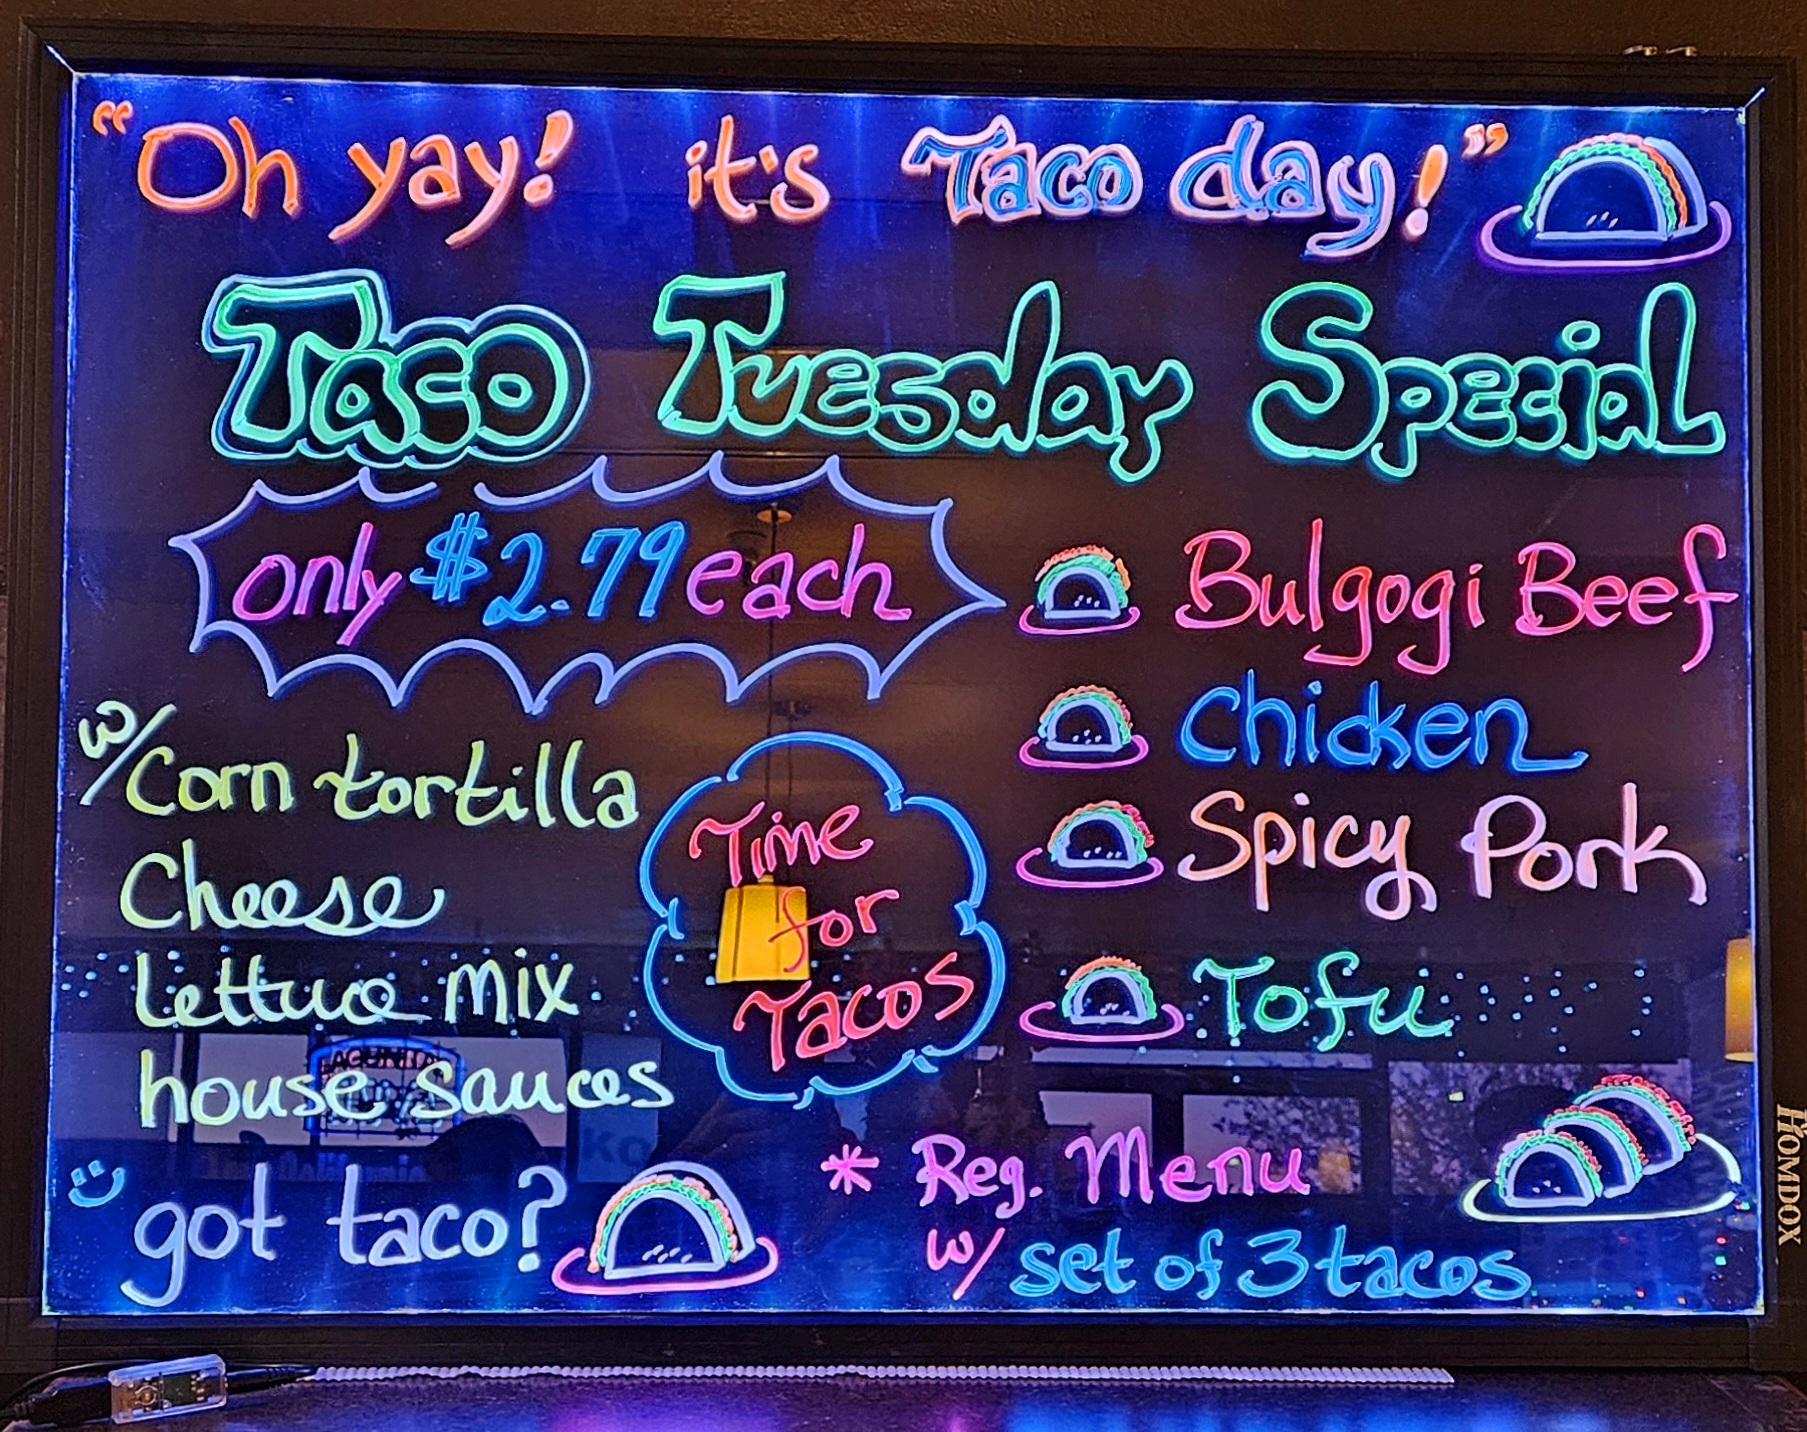 "Oh yay! it's Taco day!"
Taco Tuesday Special
only $2.79 each
w/ Corn tortilla
Cheese
lettuce mix
house sauces
Time
for
Tacos
Bulgogi Beef
Chicken
Spicy Pork
Tofu
got taco?
* Reg. Menu
w/ set of 3 tacos
HOMDOX